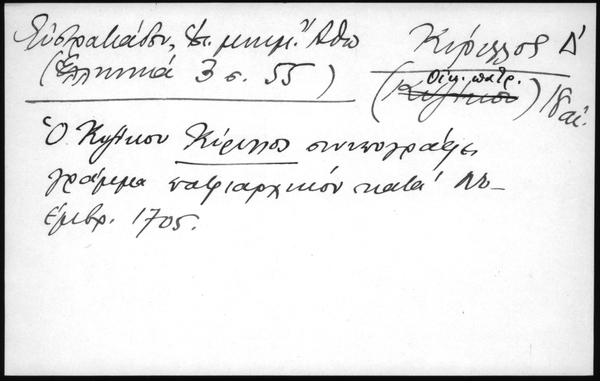 Εὐστρατιάδου, Ἱστ. μνημ. Ἄθω
(Ἑλληνικά 3 σ. 55)
Κύριλλος Δ΄
Οἰκ. πατρ.
(Κυζίκου) 18 αἰ.
Ὁ Κυζίκου Κύριλλος συνυπογράφει
γράμμα πατριαρχικόν κατά Νο-
έμβρ. 1705.